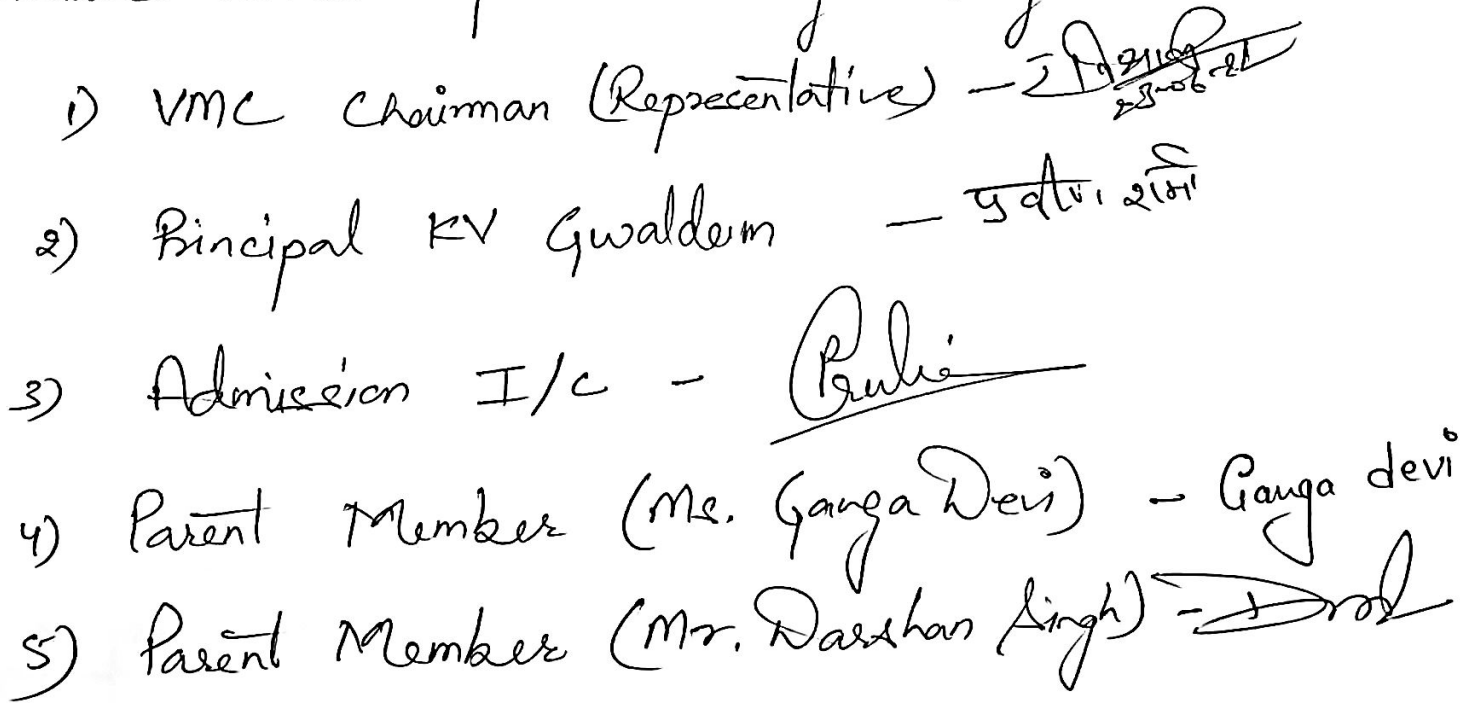 1) VMC Chairman (Representative) -
2) Principal KV Gwaldam - प्रवीण शर्मा
3) Admission I/C -
4) Parent Member (Ms. Ganga Devi) - Ganga devi
5) Parent Member (Mr. Darshan Singh) -